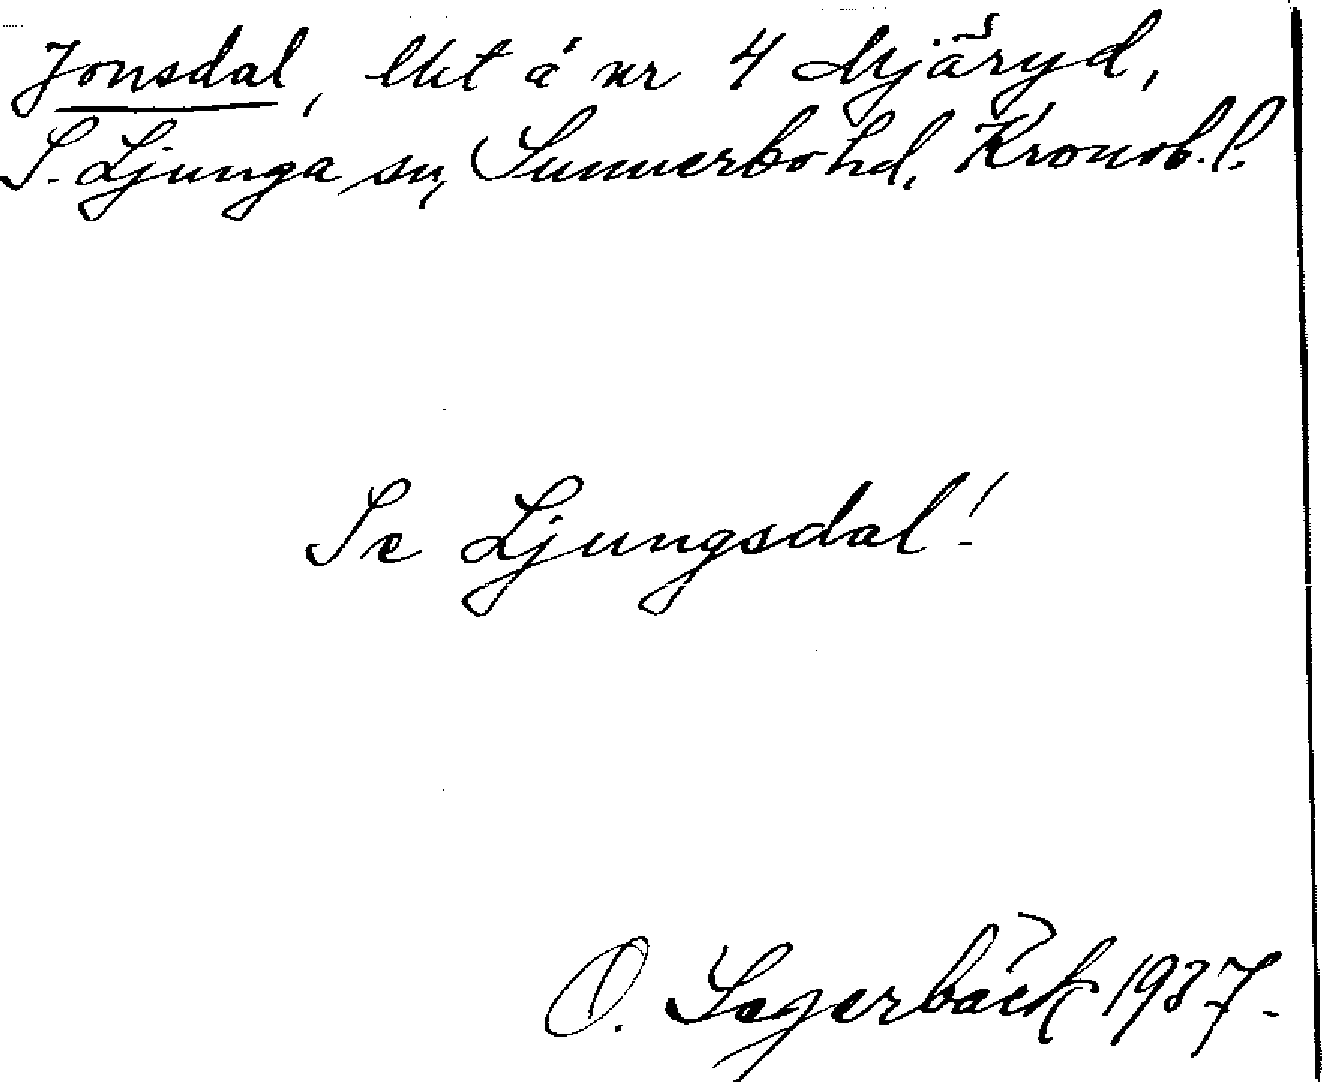 Jonsdal, lht å nr 4 Mjäryd,
S. Ljunga sn, Sunnerbo hd, Kronob. l.
Se Ljungsdal!
O. Segerbäck 1937.